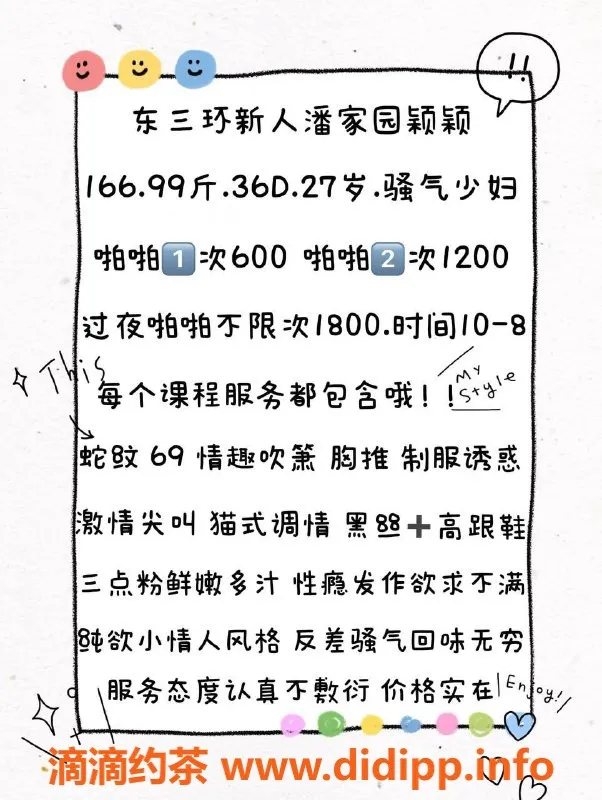 !!
东三环新人潘家园颖颖
166.99斤.36D.27岁.骚气少妇
啪啪1次600 啪啪2次1200
过夜啪啪不限次1800.时间10-8
This
每个课程服务都包含哦！！
My Style
蛇蚊 69 情趣吹箫 胸推 制服诱惑
激情尖叫 猫式调情 黑丝➕高跟鞋
三点粉鲜嫩多汁 性瘾发作欲求不满
纯欲小情人风格 反差骚气回味无穷
服务态度认真不敷衍 价格实在
Enjoy!
滴滴约茶 www.didipp.info